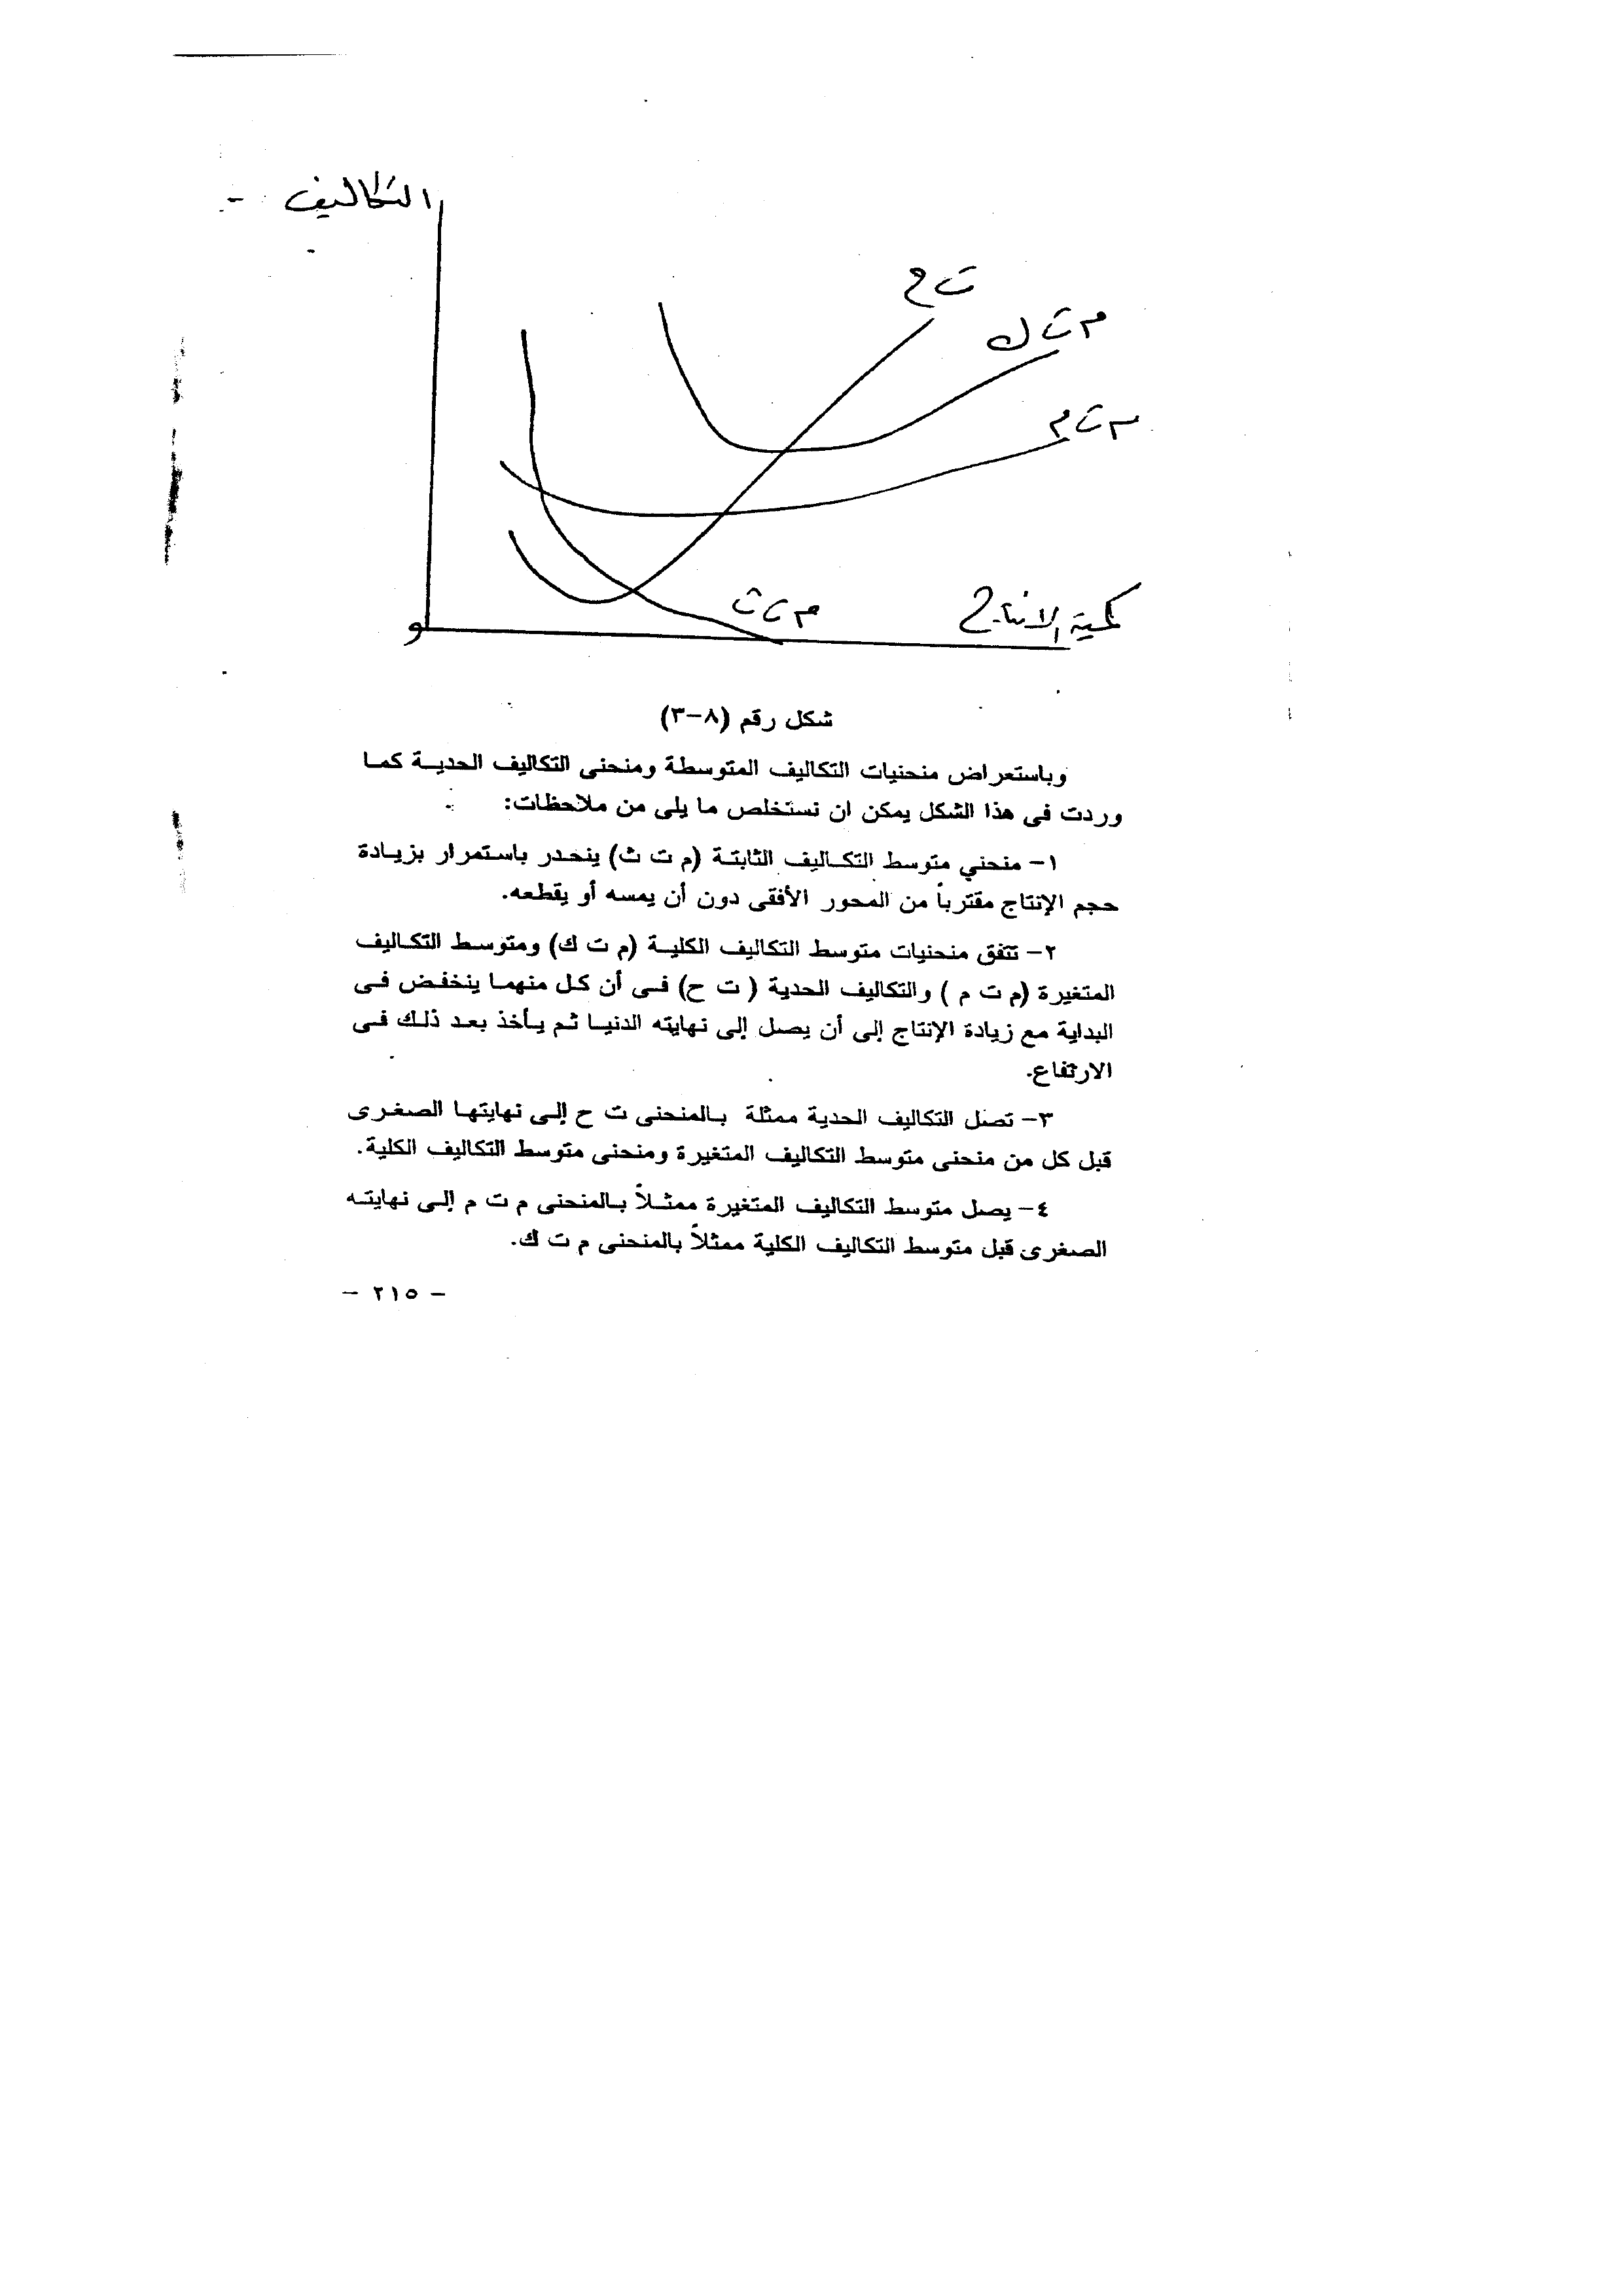 التكاليف
ت ح
م ت ك
م ت م
م ت ث
كمية الانتاج
و
شكل رقم (٨-٣)
وباستعراض منحنيات التكاليف المتوسطة ومنحنى التكاليف الحدية كما
وردت فى هذا الشكل يمكن ان نستخلص ما يلى من ملاحظات:
١- منحني متوسط التكاليف الثابتة (م ت ث) ينحدر باستمرار بزيادة
حجم الإنتاج مقترباً من المحور الأفقى دون أن يمسه أو يقطعه.
٢- تتفق منحنيات متوسط التكاليف الكلية (م ت ك) ومتوسط التكاليف
المتغيرة (م ت م ) والتكاليف الحدية ( ت ح) فى أن كل منهما ينخفض فى
البداية مع زيادة الإنتاج إلى أن يصل إلى نهايته الدنيا ثم يأخذ بعد ذلك فى
الارتفاع.
٣- تصل التكاليف الحدية ممثلة بالمنحنى ت ح إلى نهايتها الصغرى
قبل كل من منحنى متوسط التكاليف المتغيرة ومنحنى متوسط التكاليف الكلية.
٤- يصل متوسط التكاليف المتغيرة ممثلاً بالمنحنى م ت م إلى نهايته
الصغرى قبل متوسط التكاليف الكلية ممثلاً بالمنحنى م ت ك.
- ٢١٥ -